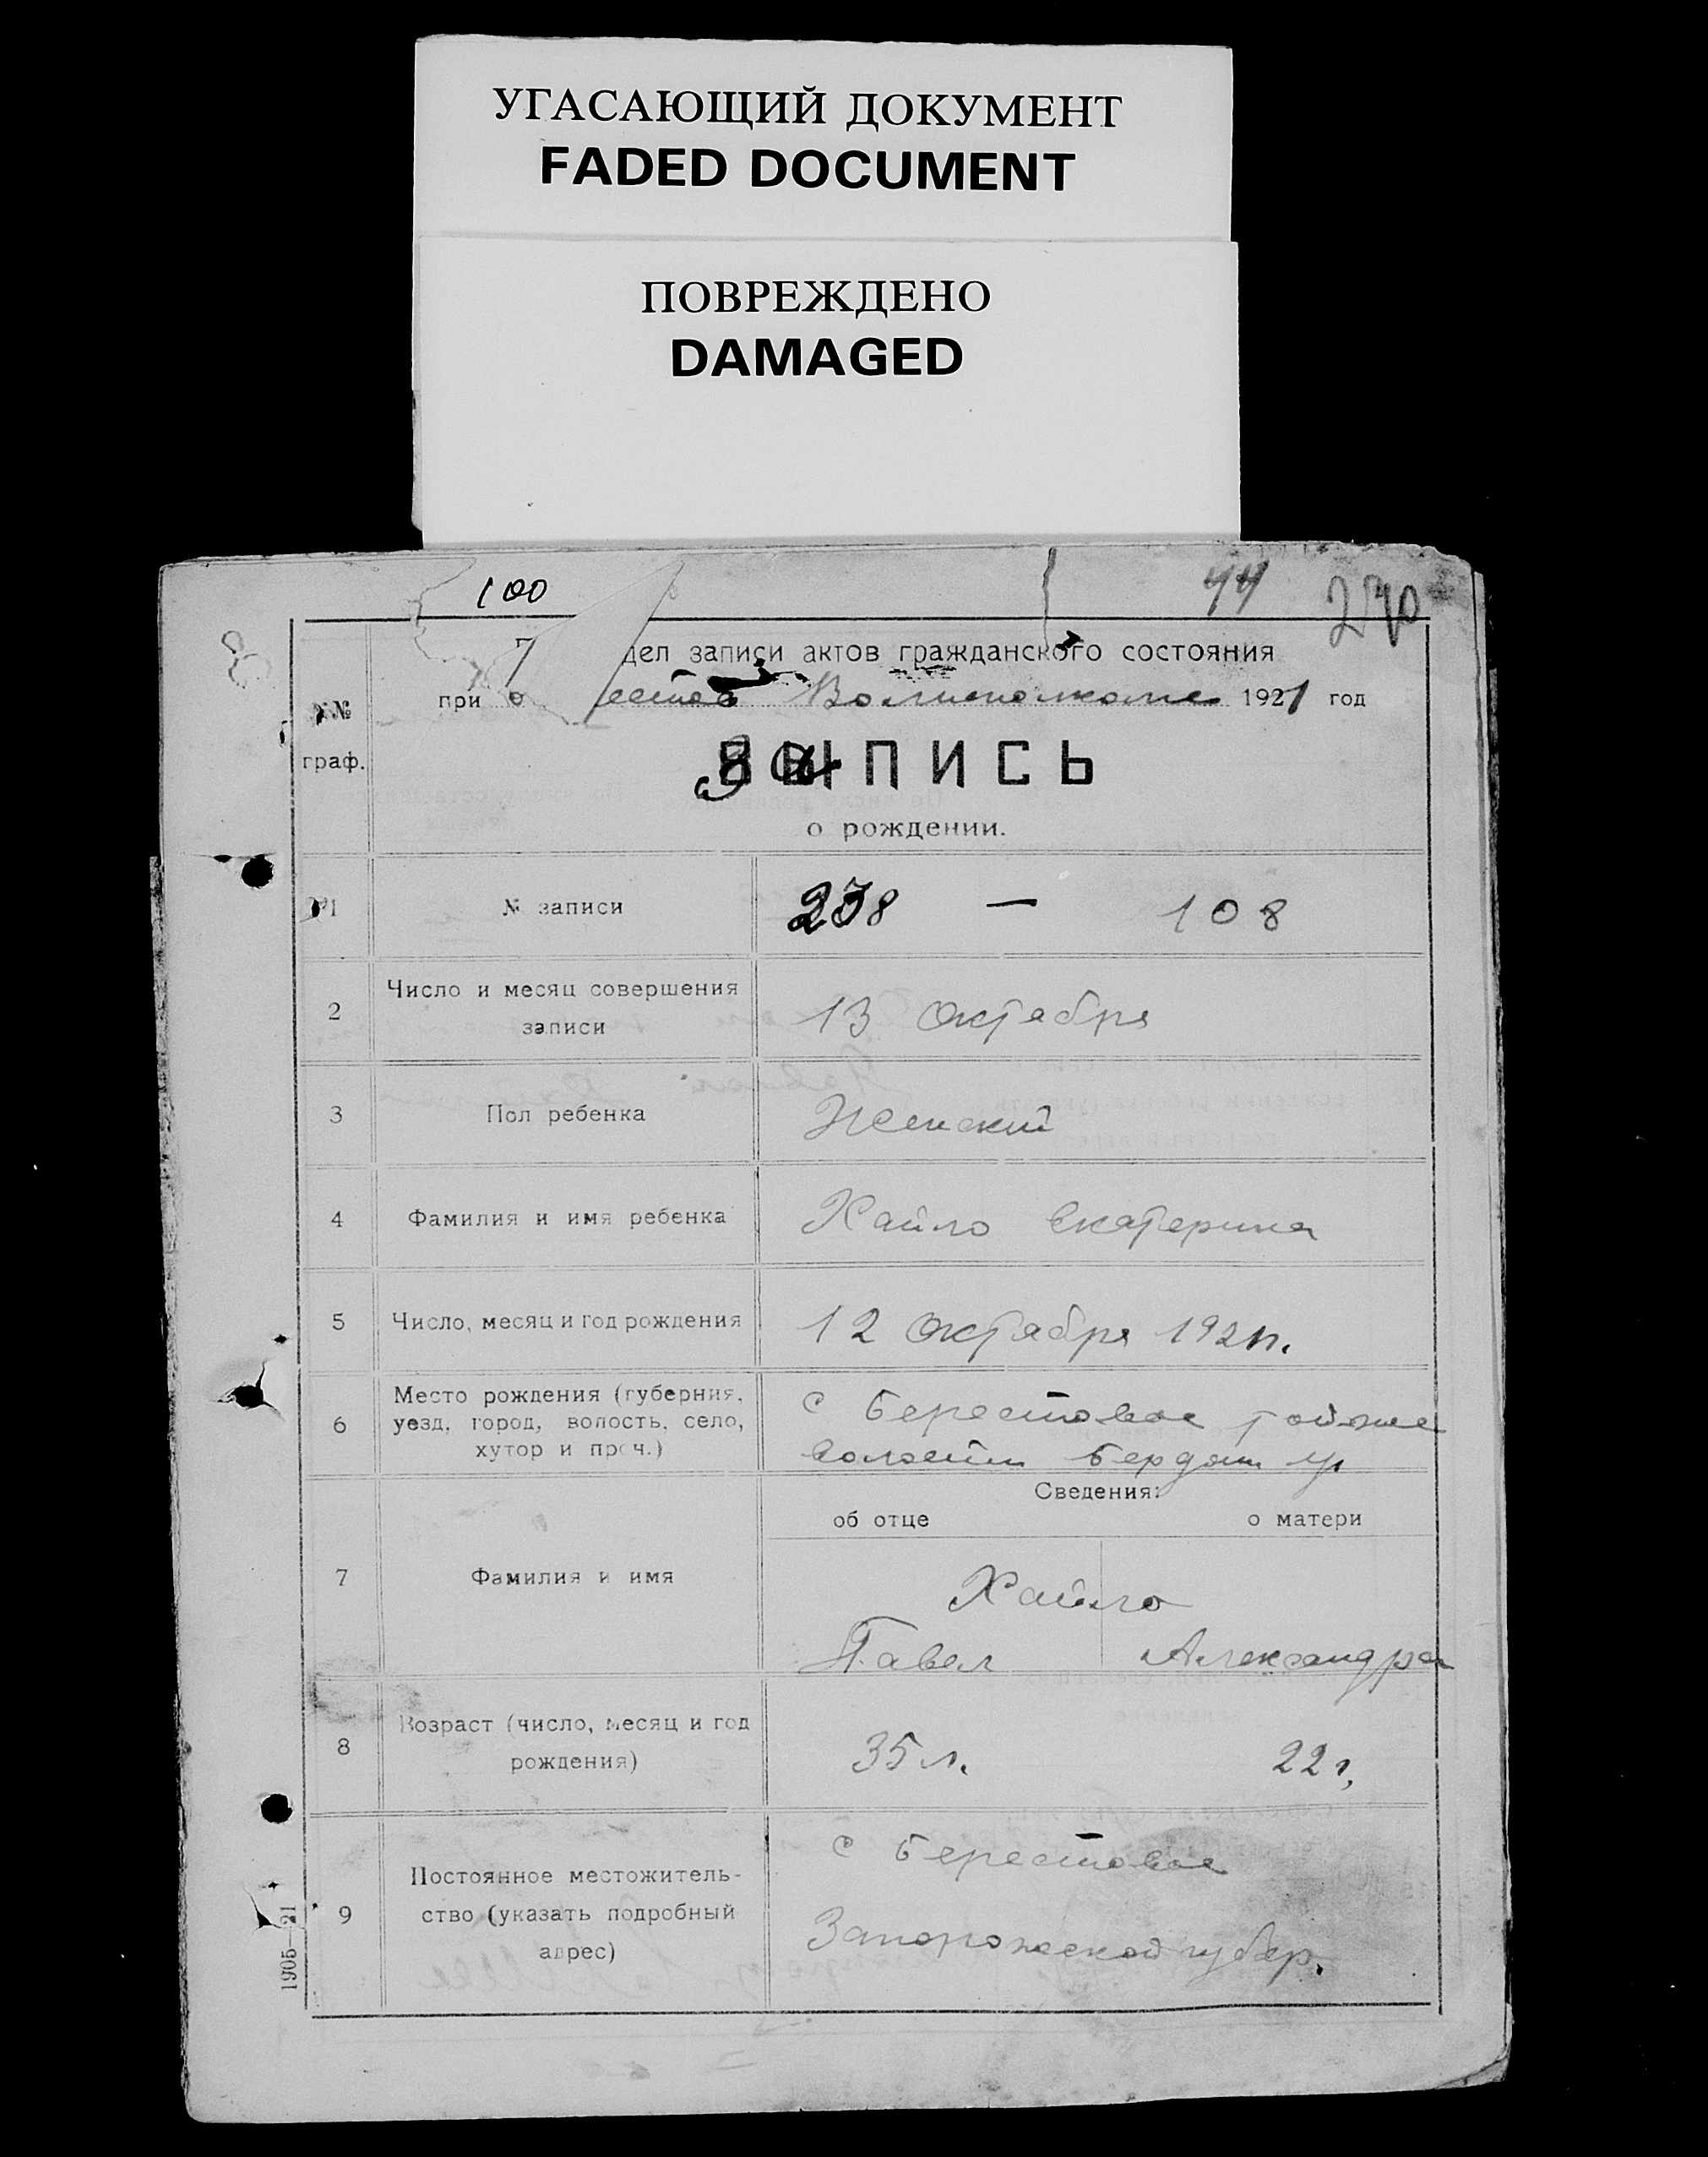 УГАСАЮЩИЙ ДОКУМЕНТ
FADED DOCUMENT
ПОВРЕЖДЕНО
DAMAGED
100
44
270
дел записи актов гражданского состояния
при о естов Волисполкоме 1921 год
№№
граф.
ВЫПИСЬ
о рождении.
1 № записи 238 — 108
2 Число и месяц совершения
записи
13 Октября
3 Пол ребенка Женский
4 Фамилия и имя ребенка Хайло Екатерина
5 Число, месяц и год рождения 12 Октября 1921г.
6 Место рождения (губерния,
уезд, город, волость, село,
хутор и проч.)
с Берестовое тойже
волости Бердян у
Сведения:
об отце о матери
7 Фамилия и имя
Хайло
Павел Александра
8 Возраст (число, месяц и год
рождения)
35 л. 22 г.
9 Постоянное местожитель-
ство (указать подробный
адрес)
с Берестовое
Запорожской губер.
1905—21